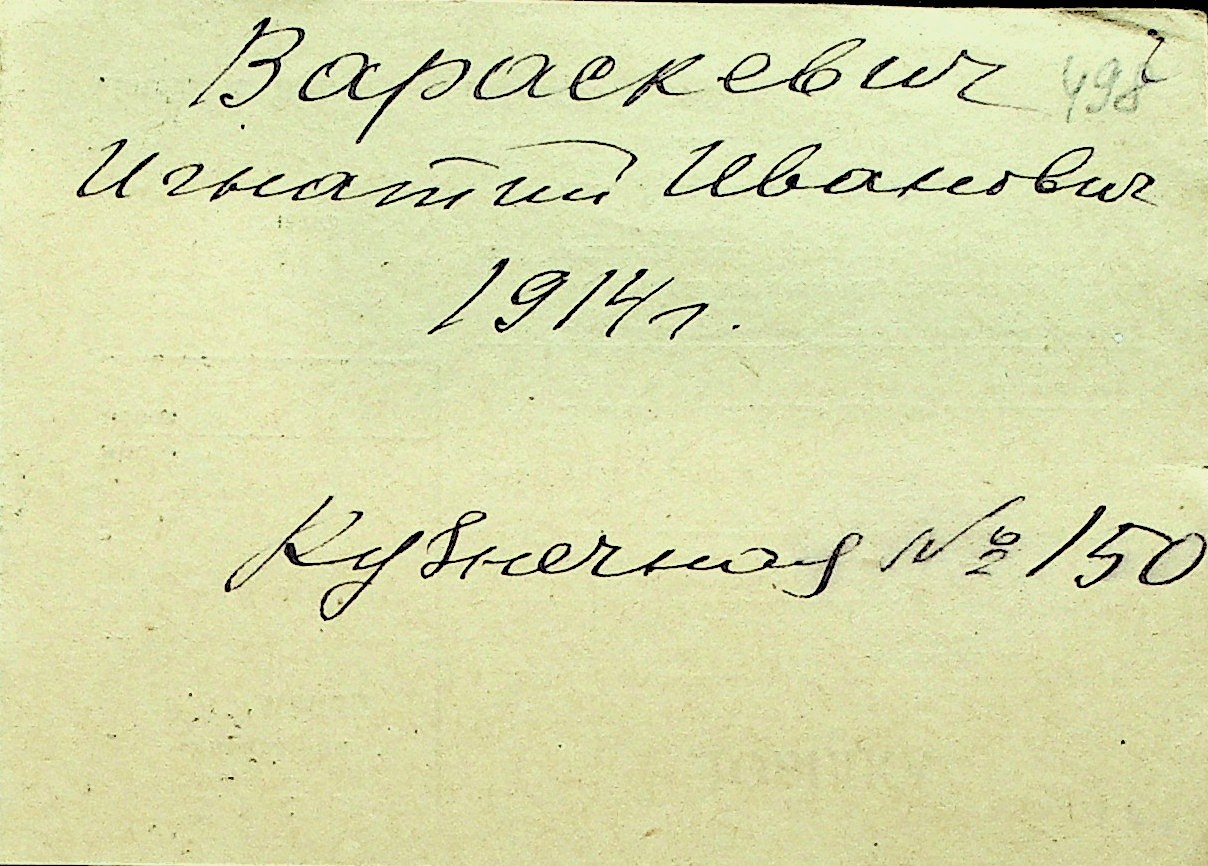 Вараскевич 498
Игнатий Иванович
1914 г.
Кузнечная № 150